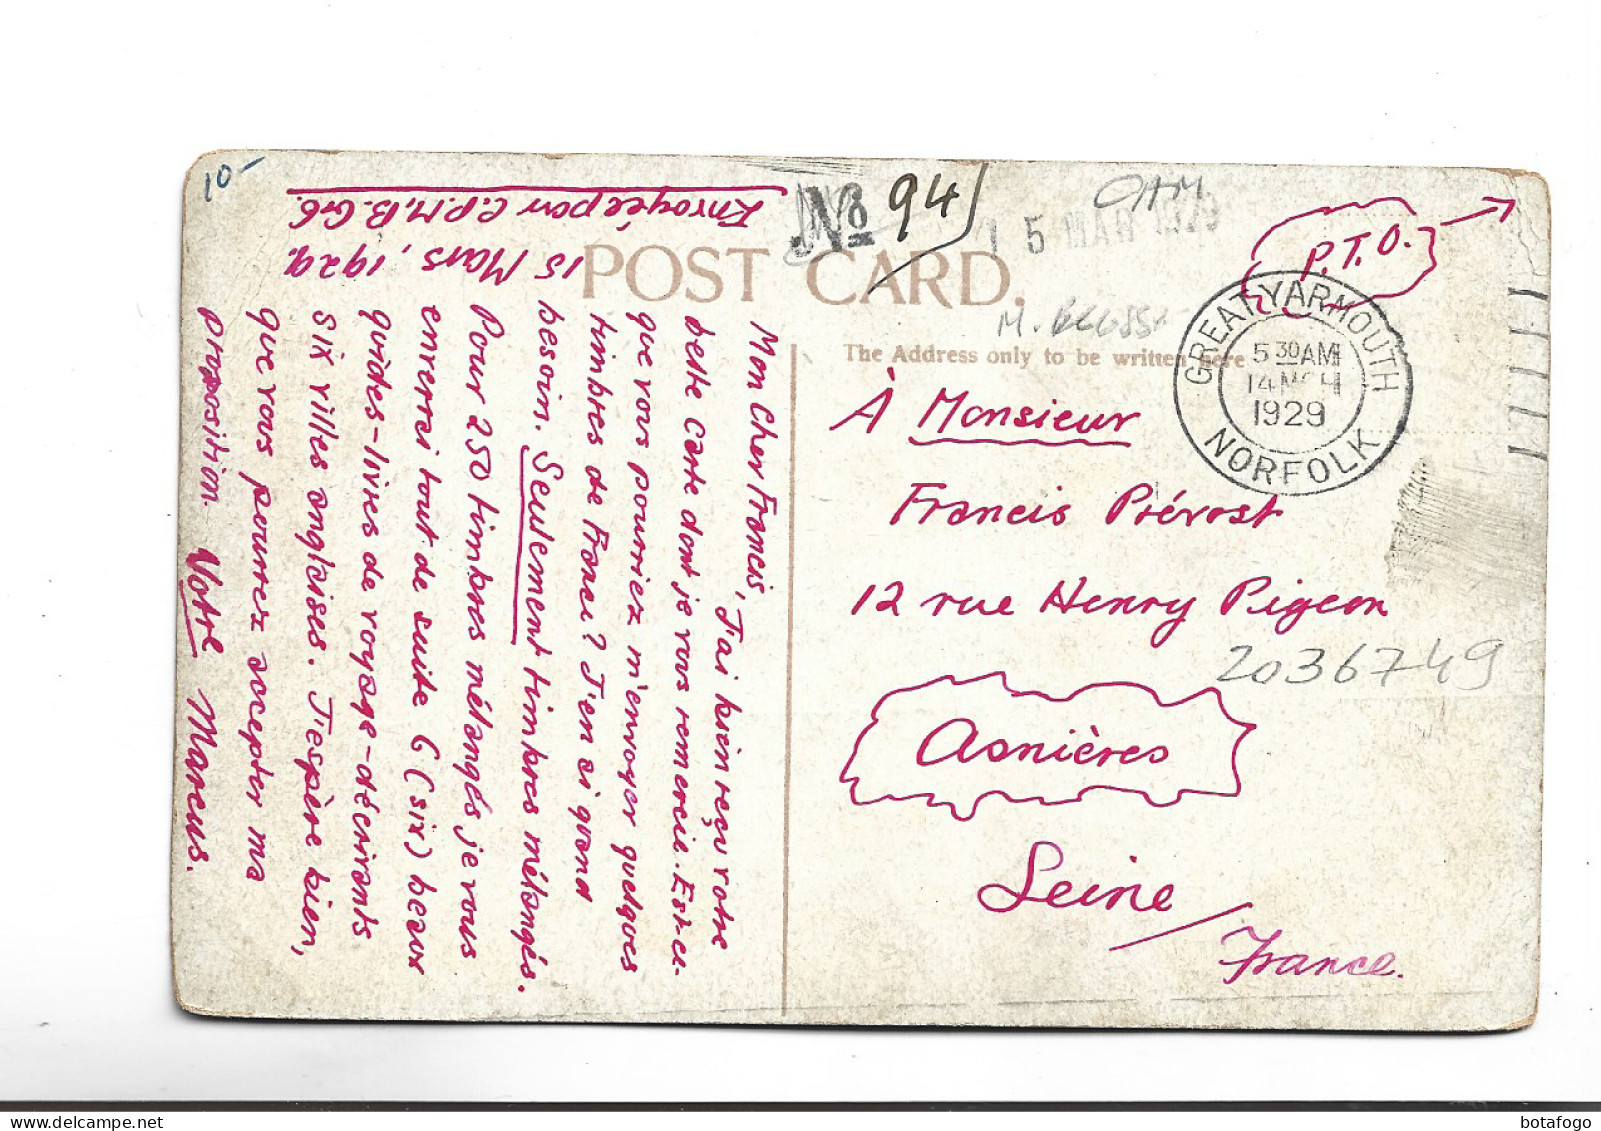 10-
Envoyée par C.P.M.B.G.6.
15 Mars, 1929.
No 94
15 MAR 1929
P.T.O.
POST CARD.
The Address only to be written here
GREAT YARMOUTH
5 30 AM
14 MCH
1929
NORFOLK
Mon Cher Francis,
J'ai bien reçu votre
belle carte dont je vous remercie. Est-ce
que vous pourriez m'envoyer quelques
timbres de France? J'en ai grand
besoin. Seulement timbres mélangés.
Pour 250 timbres mélangés je vous
enverrai tout de suite 6 (six) beaux
guides-livres de voyage-décrivants
six villes anglaises. J'espère bien,
que vous pourrez accepter ma
proposition. Votre Marcus.
À Monsieur
Francis Prévost
12 rue Henry Pigeon
20367149
Asnières
Seine
France.
botafogo